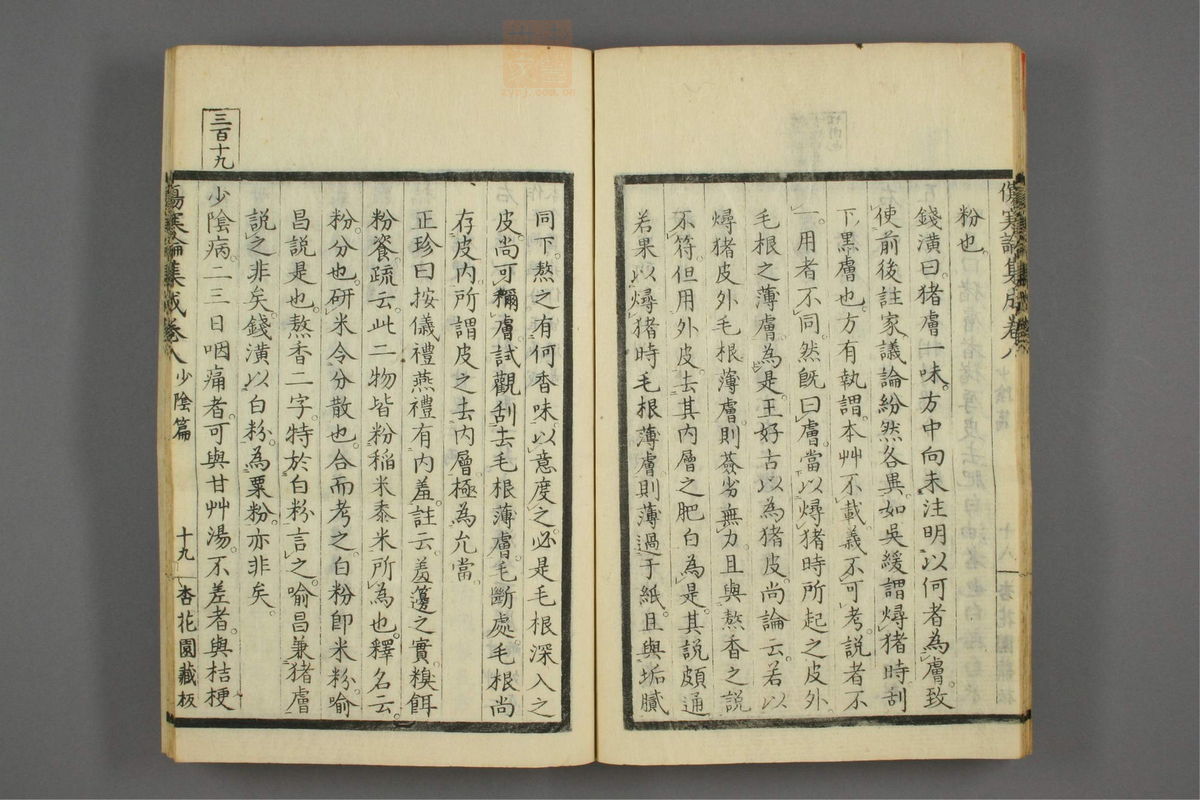 傷寒論集成卷八
粉也。
錢潢曰。猪膚一味。方中向未注明以何者為膚。致
使前後註家議論紛然各異。如吳綬謂燖猪時刮
下黑膚也。方有執謂。本艸不載義不可考。說者不
一。用者不同。然既曰膚。當以燖猪時所起之皮外
毛根之薄膚為是。王好古以為猪皮。尚論云。若以
燖猪皮外毛根薄膚。則簽劣無力。且與熬香之說
不符。但用外皮。去其內層之肥白為是。其說頗通。
若果以燖猪時毛根薄膚。則薄過于紙。且與垢膩
同下。熬之有何香味。以意度之。必是毛根深入之
皮。尚可稱膚。試觀刮去毛根薄膚。毛斷處。毛根尚
存皮內。所謂皮之去內層。極為允當。
正珍曰。按儀禮燕禮有內羞。註云。羞籩之實。糗餌
粉餈。疏云。此二物皆粉稻米黍米所為也。釋名云。
粉。分也。研米令分散也。合而考之。白粉卽米粉。喻
昌說是也。熬香二字。特於白粉言之。喻昌兼猪膚
說之非矣。錢潢以白粉為粟粉。亦非矣。
三百十九
少陰病。二三日咽痛者。可與甘艸湯。不差者。與桔梗
傷寒論集成卷八 少陰篇 十九 杏花園藏板